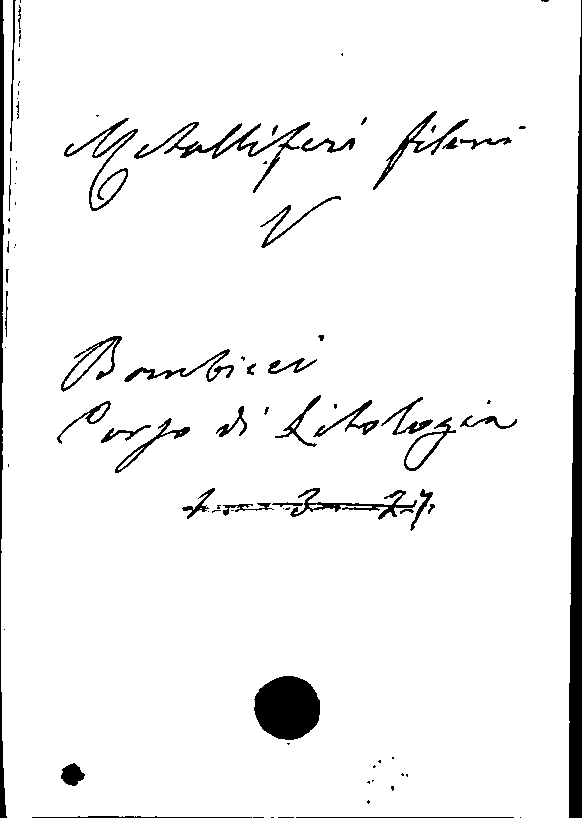 Metalliferi filoni
V
Bombicci
Corso di Litologia
1. 3. 27.